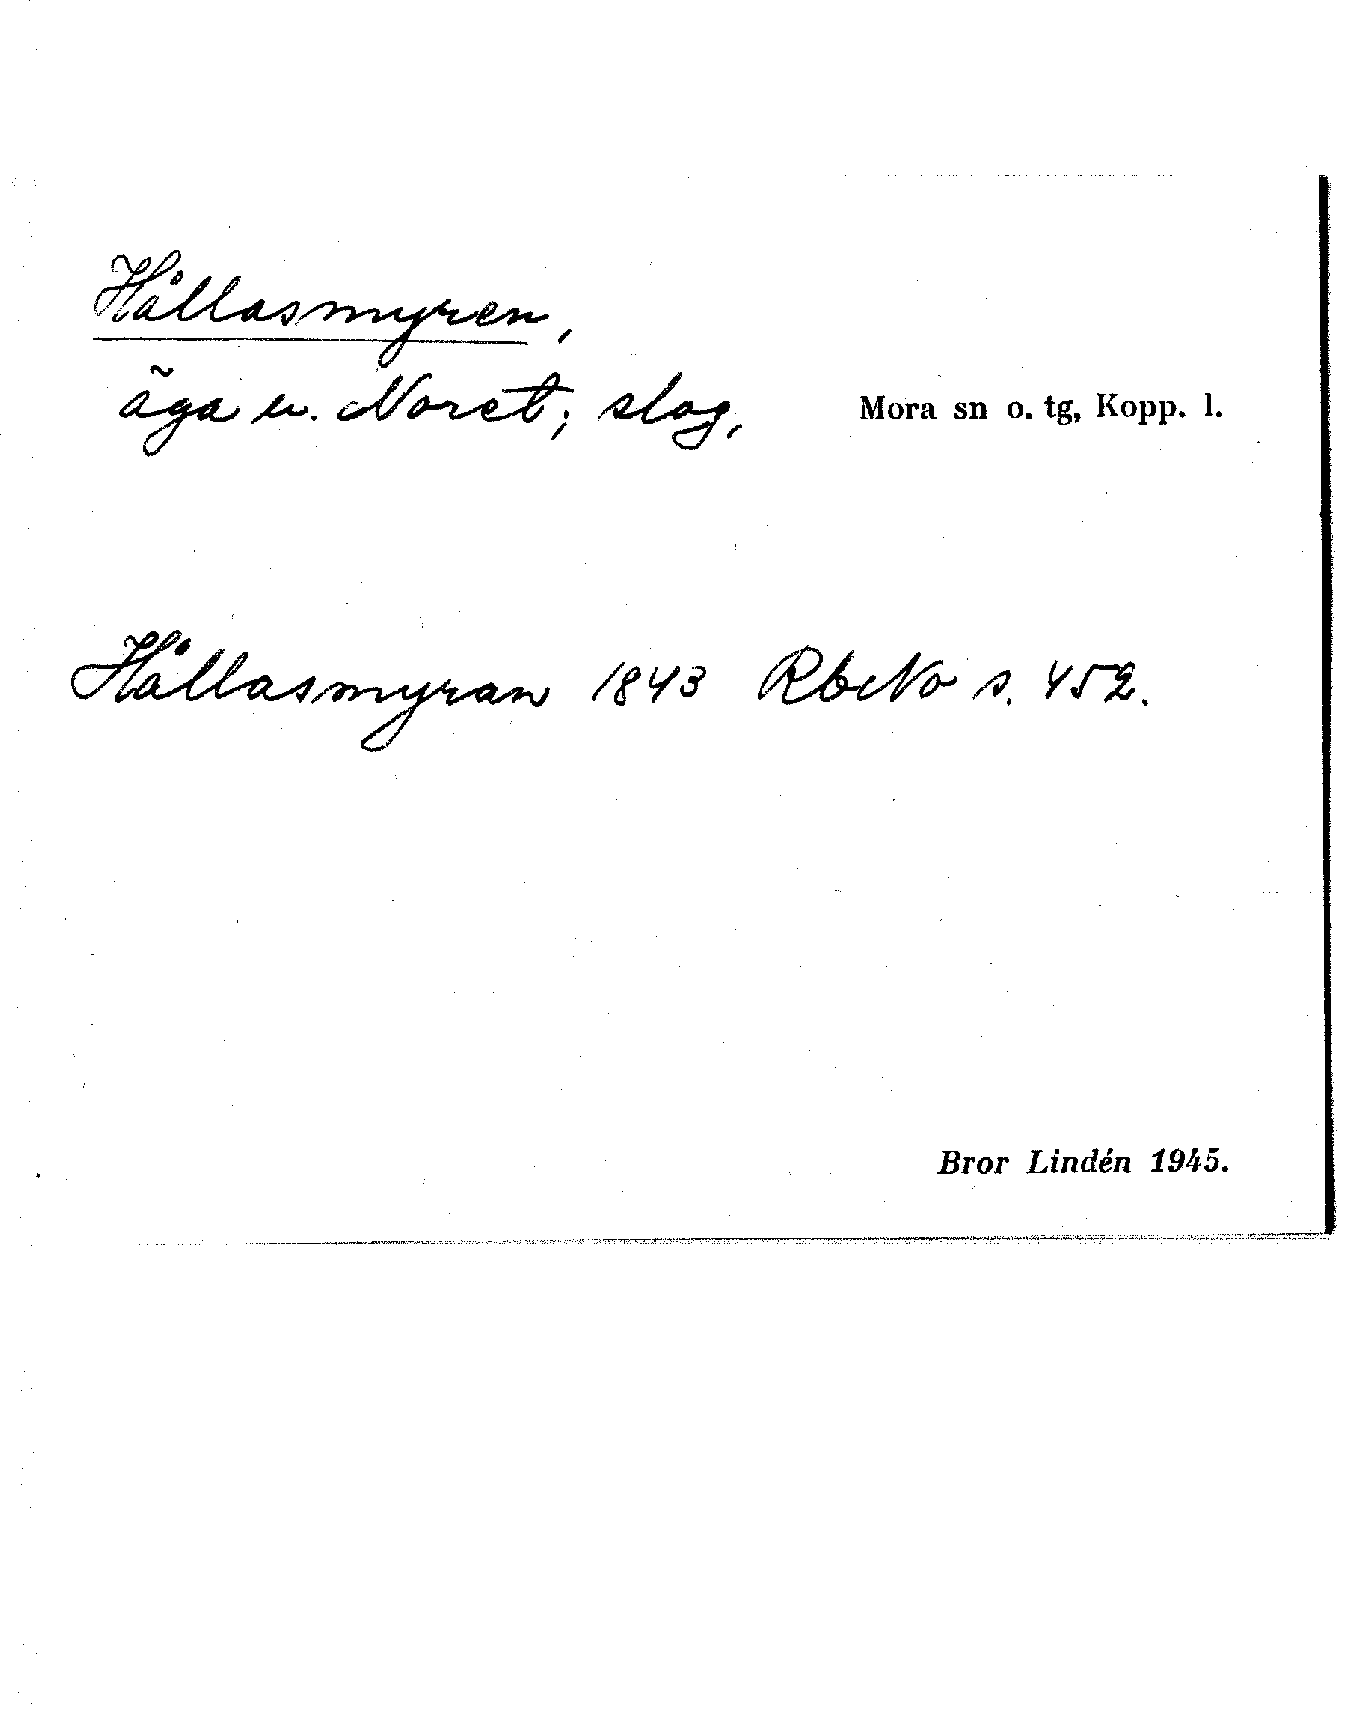 Hållasmyren,
äga u. Noret; slog, Mora sn o. tg, Kopp. l.
Hållasmyran 1843 RbNo s. 452.
Bror Lindén 1945.